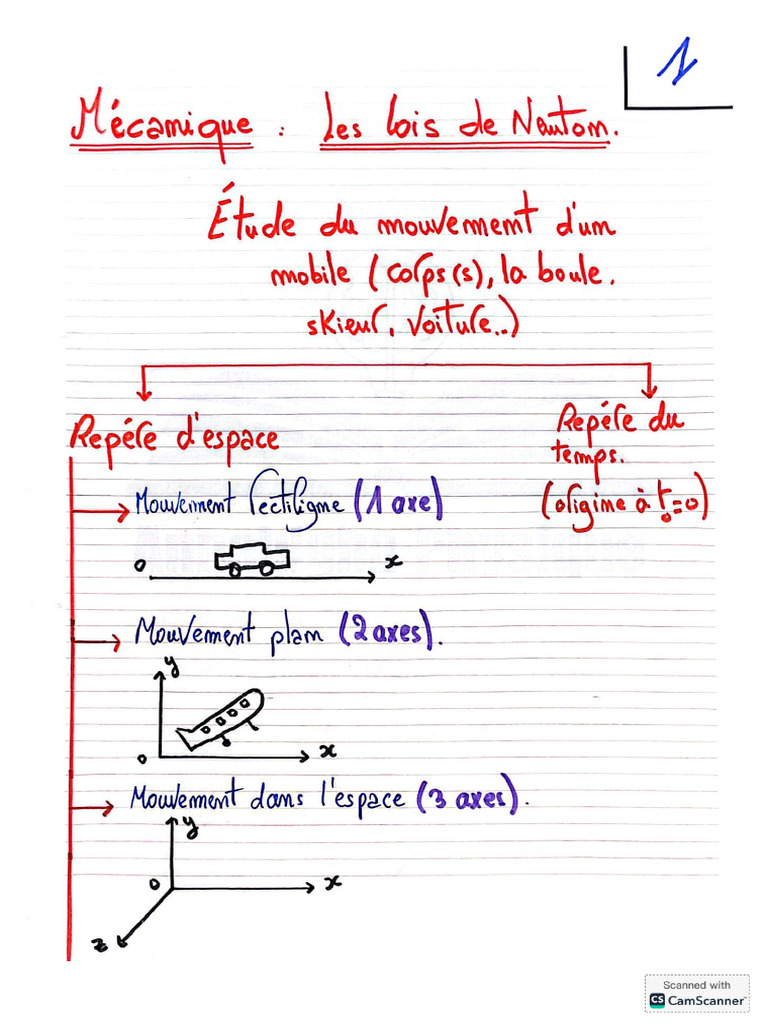 1
Mécanique : Les lois de Newton.
Étude du mouvement d'un
mobile (corps(s), la boule.
skieur, voiture..)
Repére d'espace
Repére du
temps.
(origine à t₀=0)
Mouvement rectiligne (1 axe)
o
x
Mouvement plan (2 axes).
y
o
x
Mouvement dans l'espace (3 axes).
y
o
x
z
Scanned with
CS CamScanner